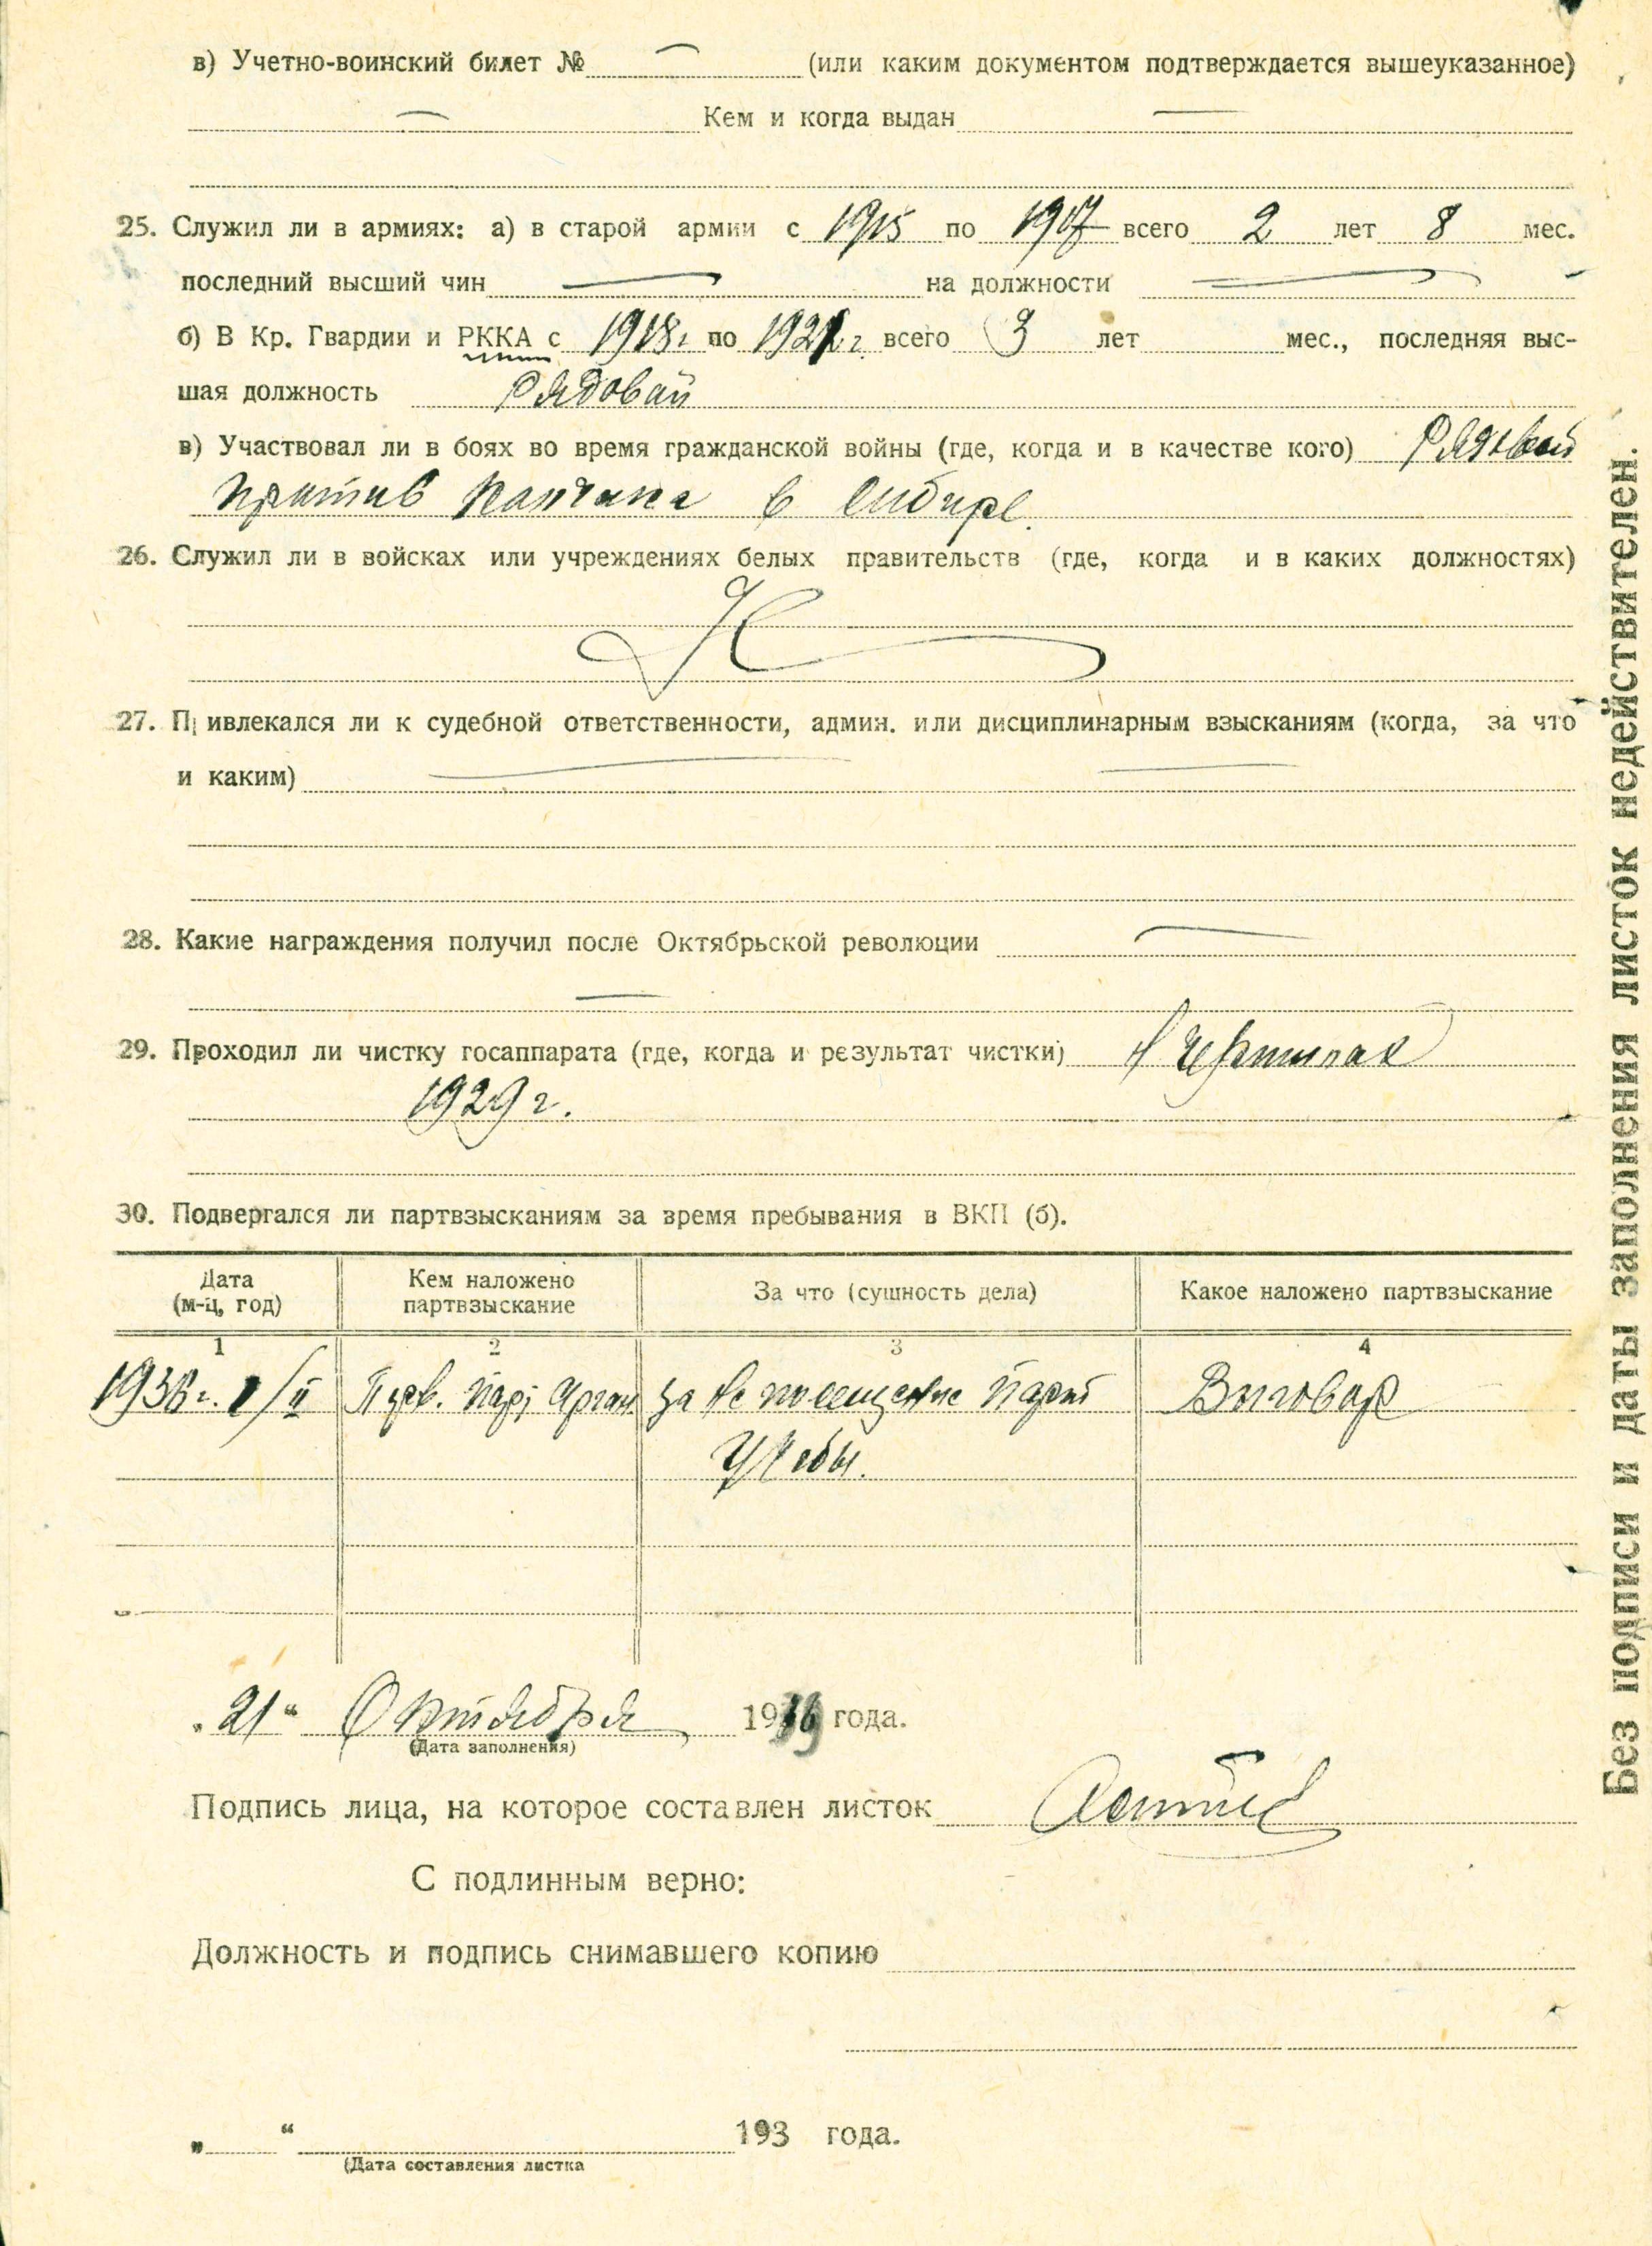 в) Учетно-воинский билет № — (или каким документом подтверждается вышеуказанное)
— Кем и когда выдан —
25. Служил ли в армиях: а) в старой армии с 1915 по 1917 всего 2 лет 8 мес.
последний высший чин — на должности —
б) В Кр. Гвардии и РККА с 1918 г. по 1921 г. всего 3 лет мес., последняя выс-
шая должность Рядовай
в) Участвовал ли в боях во время гражданской войны (где, когда и в качестве кого) Рядовой
против Колчака в Сибире.
26. Служил ли в войсках или учреждениях белых правительств (где, когда и в каких должностях)
27. Привлекался ли к судебной ответственности, админ. или дисциплинарным взысканиям (когда, за что
и каким) — —
28. Какие награждения получил после Октябрьской революции —
—
29. Проходил ли чистку госаппарата (где, когда и результат чистки)
1929 г.
30. Подвергался ли партвзысканиям за время пребывания в ВКП (б).
Дата (м-ц, год) Кем наложено партвзыскание За что (сушность дела) Какое наложено партвзыскание
1 2 3 4
1938 г. /II Перв. Парт Орган за не посещение Парт Выговар
Учебы.
„21“ Октября 19 года.
(Дата заполнения)
Подпись лица, на которое составлен листок
С подлинным верно:
Должность и подпись снимавшего копию
„ “ 193 года.
(Дата составления листка
Без подписи и даты заполнения листок недействителен.